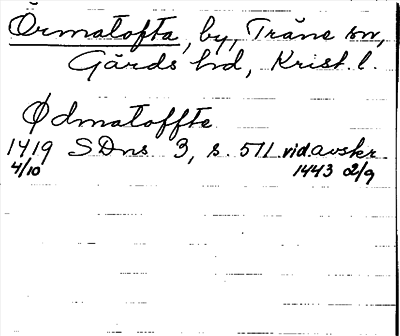 Örmatofta, by, Träne sn,
Gärds hd, Krist. l.
Ødmatoffte
1419 SDns 3, s. 511 vid.avskr.
4/10 1443 2/9